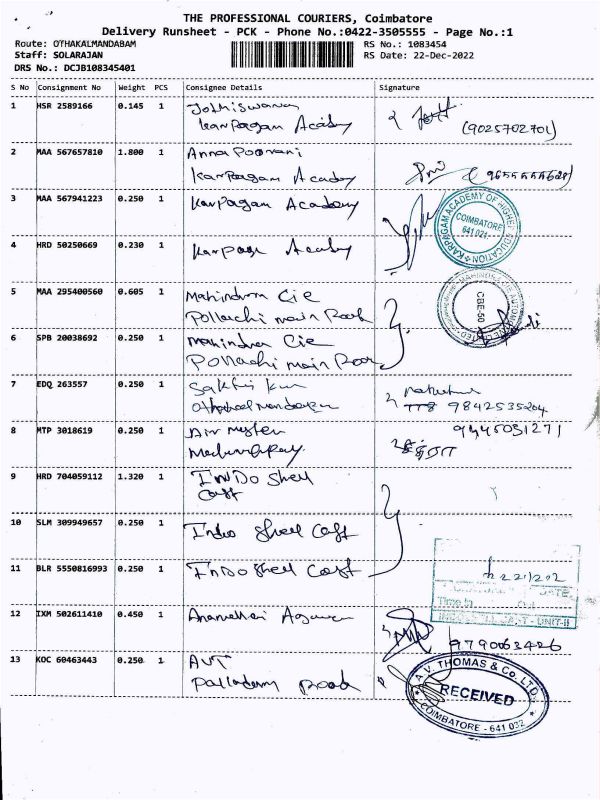 THE PROFESSIONAL COURIERS, Coimbatore
Delivery Runsheet - PCK - Phone No.:0422-3505555 - Page No.:1
Route: OTHAKALMANDABAM
RS No.: 1083454
Staff: SOLARAJAN
RS Date: 22-Dec-2022
DRS No.: DCJB108345401
S No Consignment No Weight PCS Consignee Details Signature
1 HSR 2589166 0.145 1 Jothiswaran
Karpagam Acadmy
(9025702701)
2 MAA 567657810 1.800 1 Anna Poorani
Karpagam Acadmy
3 MAA 567941223 0.250 1 Karpagam Academy
KARPAGAM ACADEMY OF HIGHER EDUCATION
COIMBATORE
641 021
4 HRD 50250669 0.230 1 Acadmy
5 MAA 295400560 0.605 1 Mahindra Cie
Pollachi main Road
CBE-50
6 SPB 20038692 0.250 1 Mahindra Cie
Pollachi main Road
7 EDQ 263557 0.250 1 Sakthi
9842535204
8 MTP 3018619 0.250 1 Air
9445031271
9 HRD 704059112 1.320 1 INDO Shell
Cast
10 SLM 309949657 0.250 1 Indo Shell Cast
11 BLR 5550816993 0.250 1 INDO Shell Cast
DATE
Time.In
UNIT-II
12 IXM 502611410 0.450 1
9790063426
13 KOC 60463443 0.250 1 AVT
Palladam Road
A.V. THOMAS & Co. LTD.
RECEIVED
COIMBATORE - 641 032